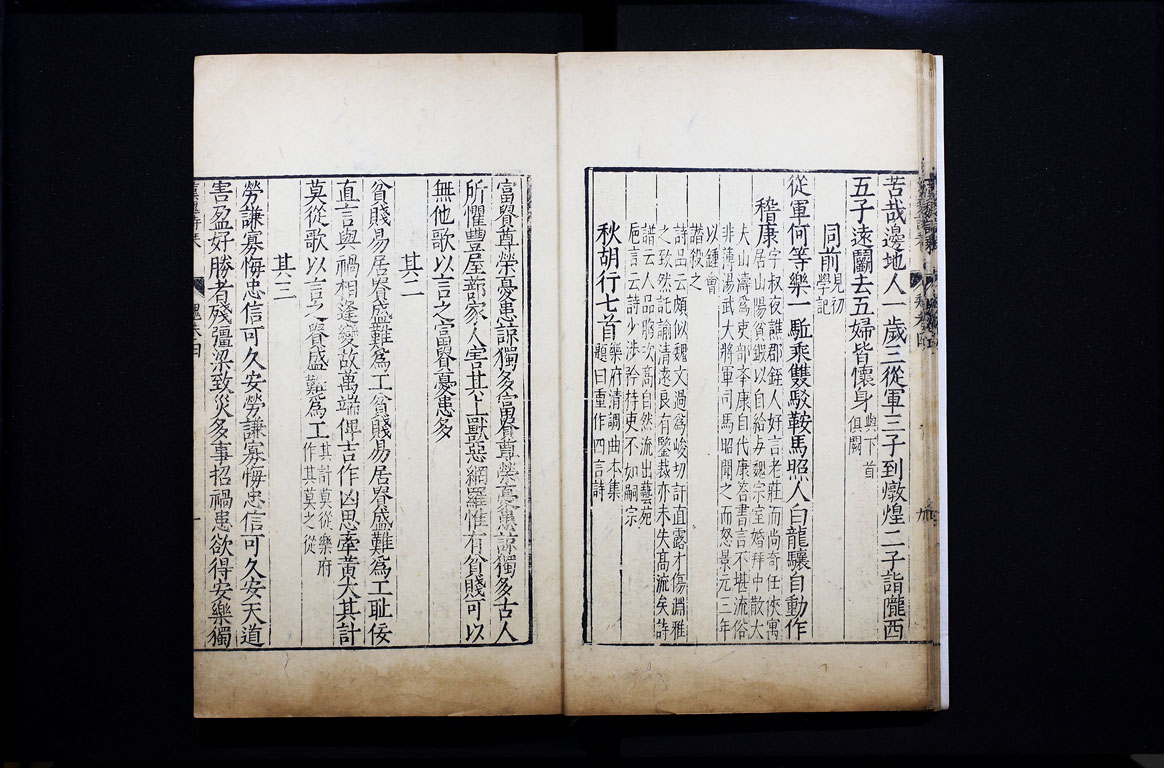 苦哉邊地人一歲三從軍三子到燉煌二子詣隴西
五子遠鬭去五婦皆懷身與下首俱闕
同前見初學記
從軍何等樂一驅乘雙駁鞍馬照人白龍驤自動作
嵇康字叔夜譙郡銍人好言老莊而尚奇任俠寓
居山陽貧鍛以自給与魏宗室婚拜中散大
夫山濤爲吏部举康自代康荅書言不堪流俗
非薄湯武大將軍司馬昭聞之而怒景元三年
以鍾會
譖殺之
詩品云頗似魏文過爲峻切訐直露才傷淵雅
之致然託諭清遠良有鑒裁亦未失高流矣詩
譜云人品胸次高自然流出藝苑
巵言云詩少涉矜持更不如嗣宗
秋胡行七首樂府清調曲本集
題曰重作四言詩
富貴尊榮憂患諒獨多富貴尊榮憂患諒獨多古人
所懼豐屋蔀家人害其上獸惡網羅惟有貧賤可以
無他歌以言之富貴憂患多
其二
貧賤易居貴盛難爲工貧賤易居貴盛難爲工耻佞
直言與禍相逢變故萬端俾吉作凶思牽黃犬其計
莫從歌以言之貴盛難爲工其計莫從樂府
作其莫之從
其三
勞謙寡悔忠信可久安勞謙寡悔忠信可久安天道
害盈好勝者殘彊梁致災多事招禍患欲得安樂獨